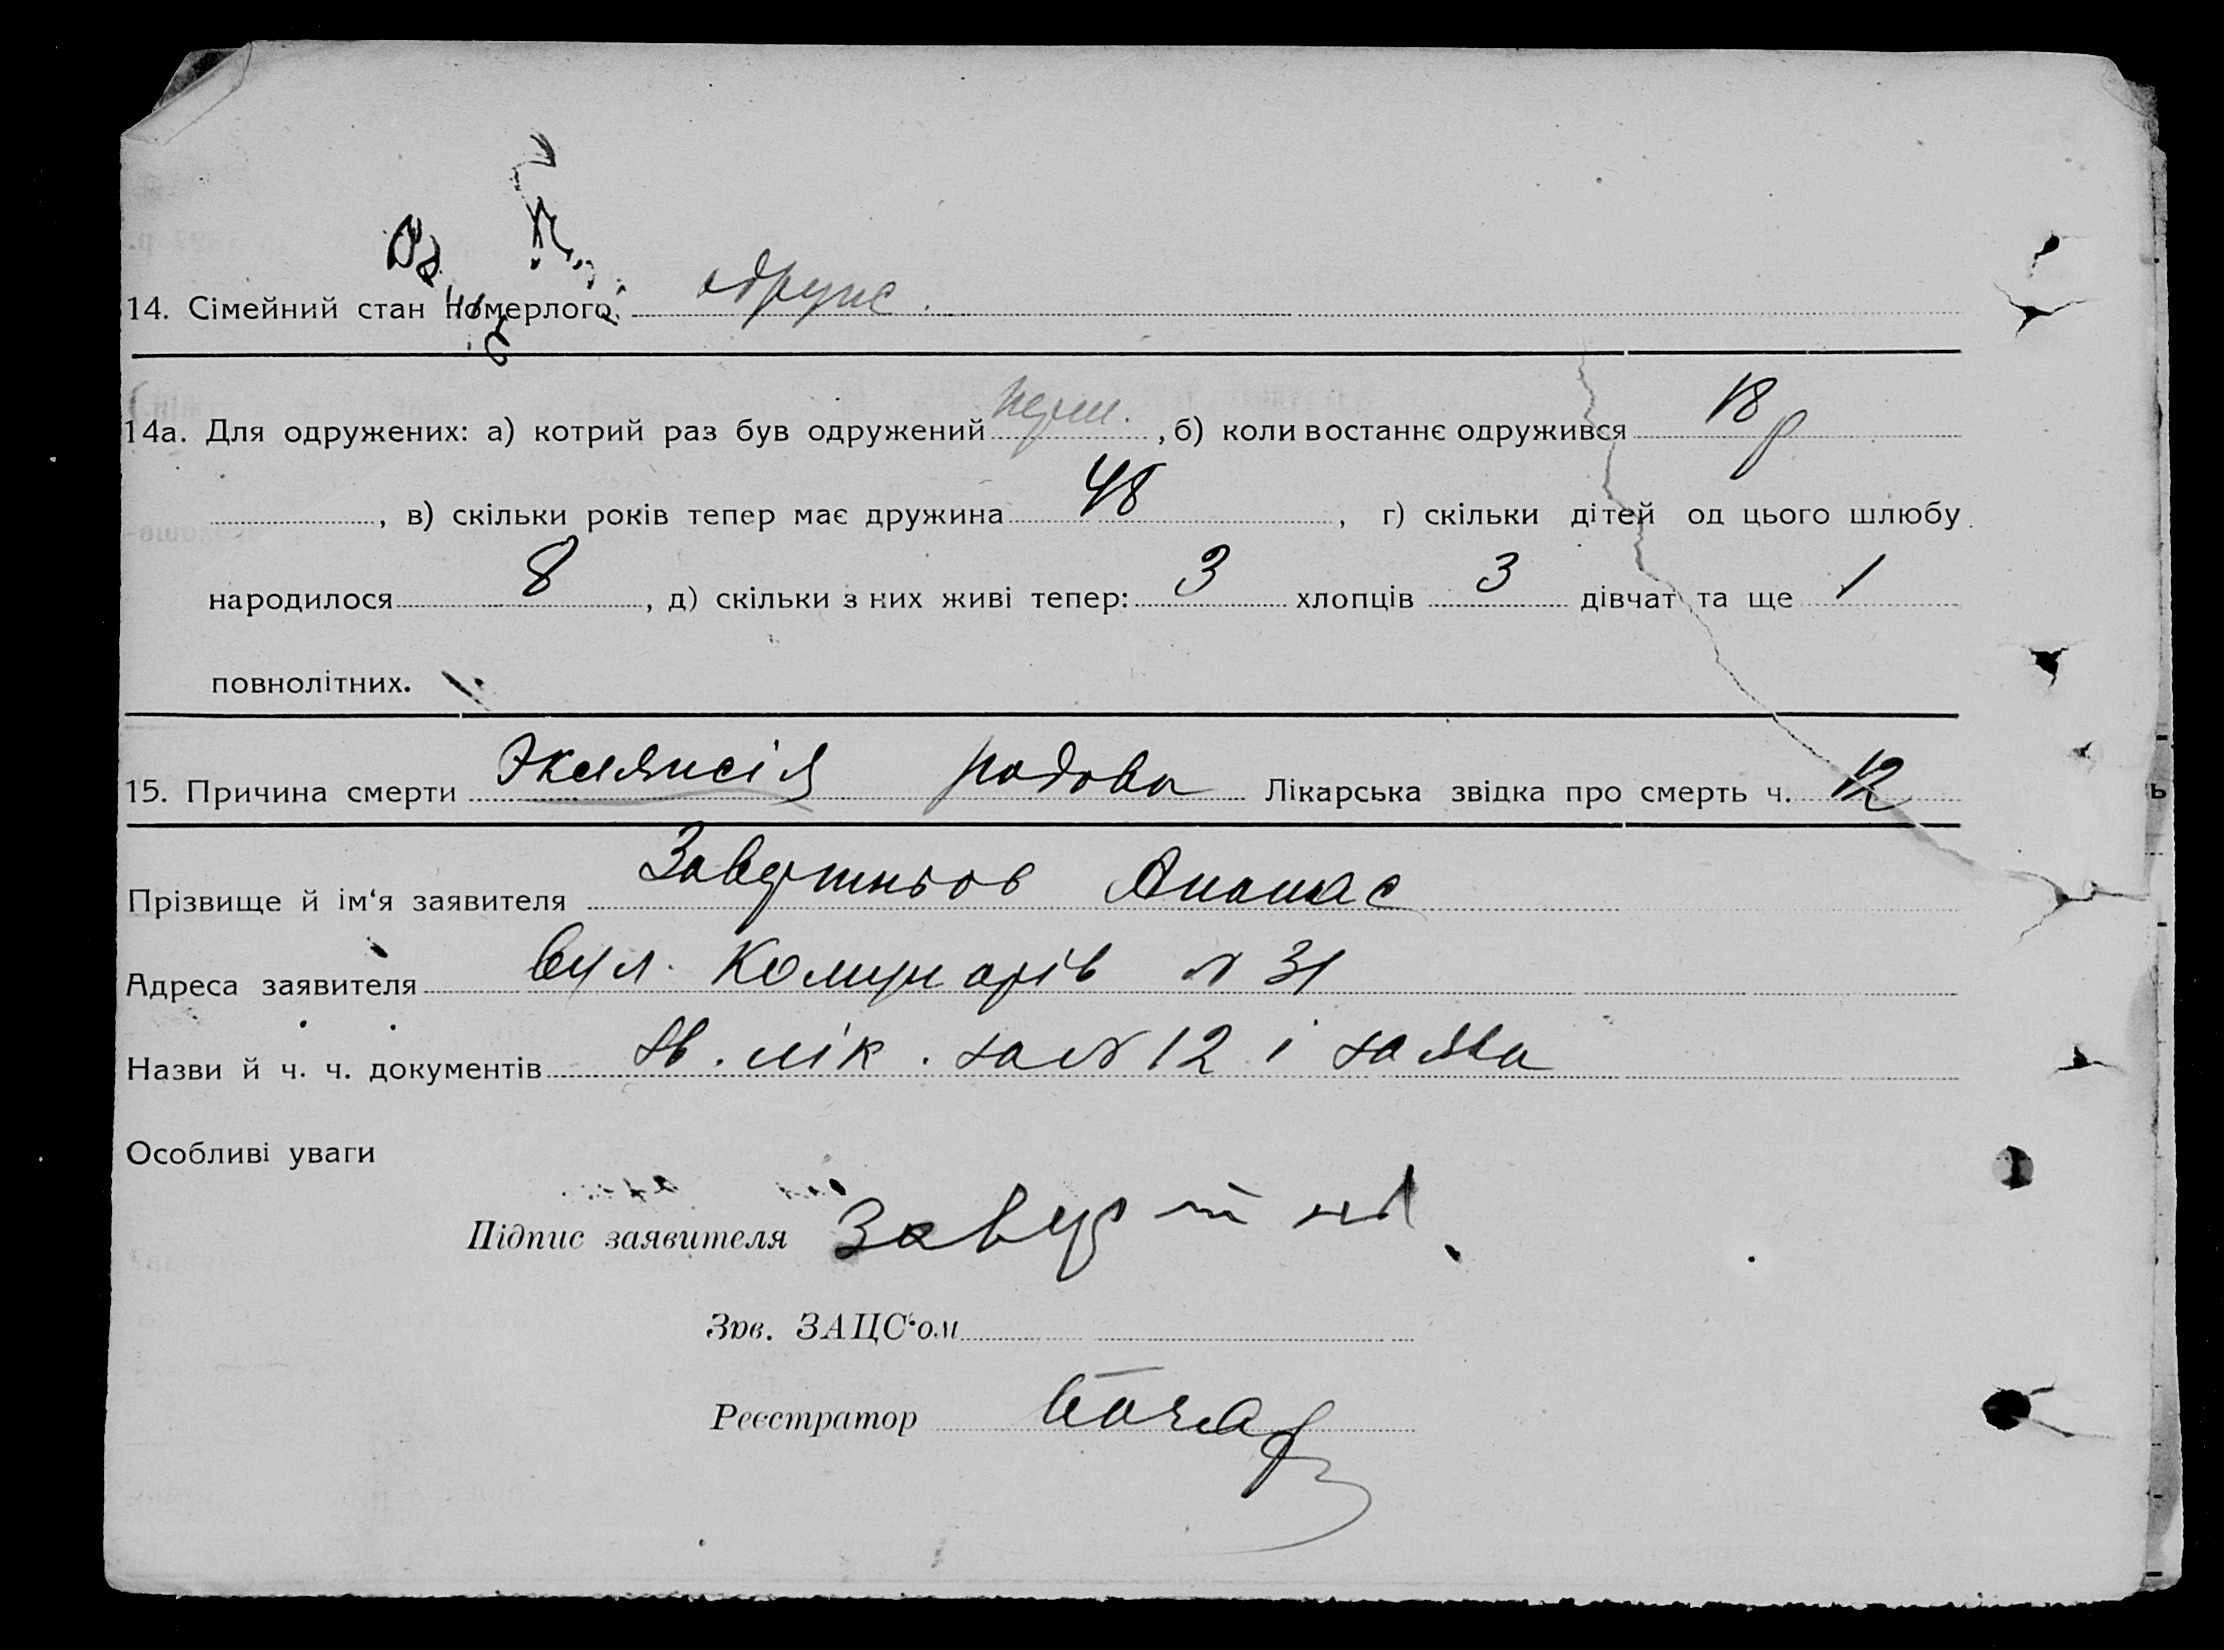 14. Сімейний стан померлого одруже.
14а. Для одружених: а) котрий раз був одружений перш., б) коли востаннє одружився 18 р
, в) скільки років тепер має дружина 48, г) скільки дітей од цього шлюбу
народилося 8, д) скільки з них живі тепер: 3 хлопців 3 дівчат та ще 1
повнолітних.
15. Причина смерти Эклямпсія родова Лікарська звідка про смерть ч. 12
Прізвище й ім'я заявителя
Адреса заявителя вул. Комунарів № 31
Назви й ч. ч. документів зв. лік. за № 12 і заява
Особливі уваги
Підпис заявителя
Зав. ЗАЦС'ом
Реєстратор